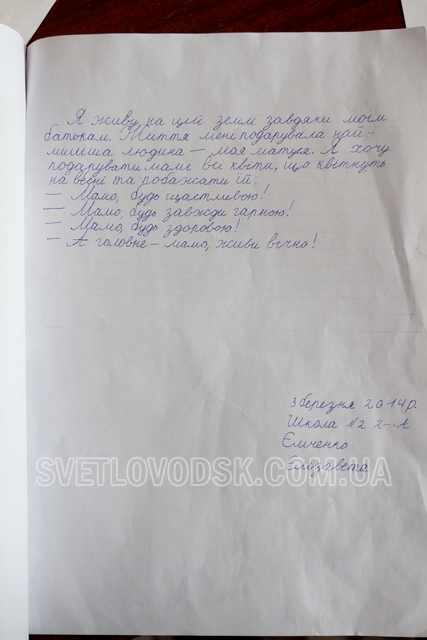 Я живу на цій землі завдяки моїм
батькам. Життя мені подарувала най-
миліша людина — моя матуся. Я хочу
подарувати мамі всі квіти, що квітнуть
на весні та побажати їй:
— Мамо, будь щасливою!
— Мамо, будь завжди гарною!
— Мамо, будь здоровою!
— А головне — мамо, живи вічно!
3 березня 2014р.
Школа №2 2-А
Ємченко
Єлизавета
SVETLOVODSK.COM.UA